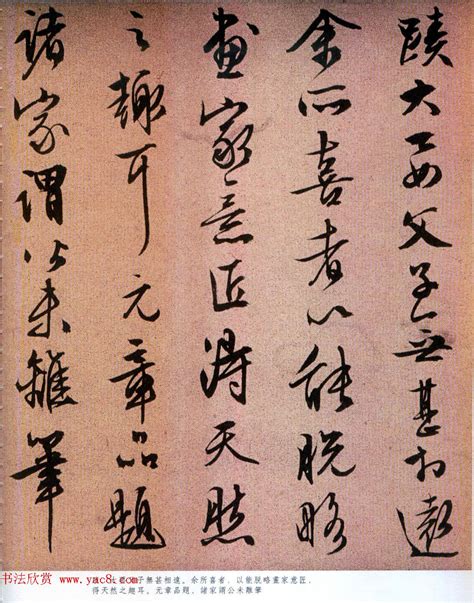 蹟大要父子無甚相遠
余所喜者以能脫略
畫家意匠得天然
之趣耳元章品題
諸家謂公未離筆
子無甚相遠。余所喜者,以能脫略畫家意匠,
得天然之趣耳。元章品題,諸家謂公未離筆
书法欣赏 www.yac8.com